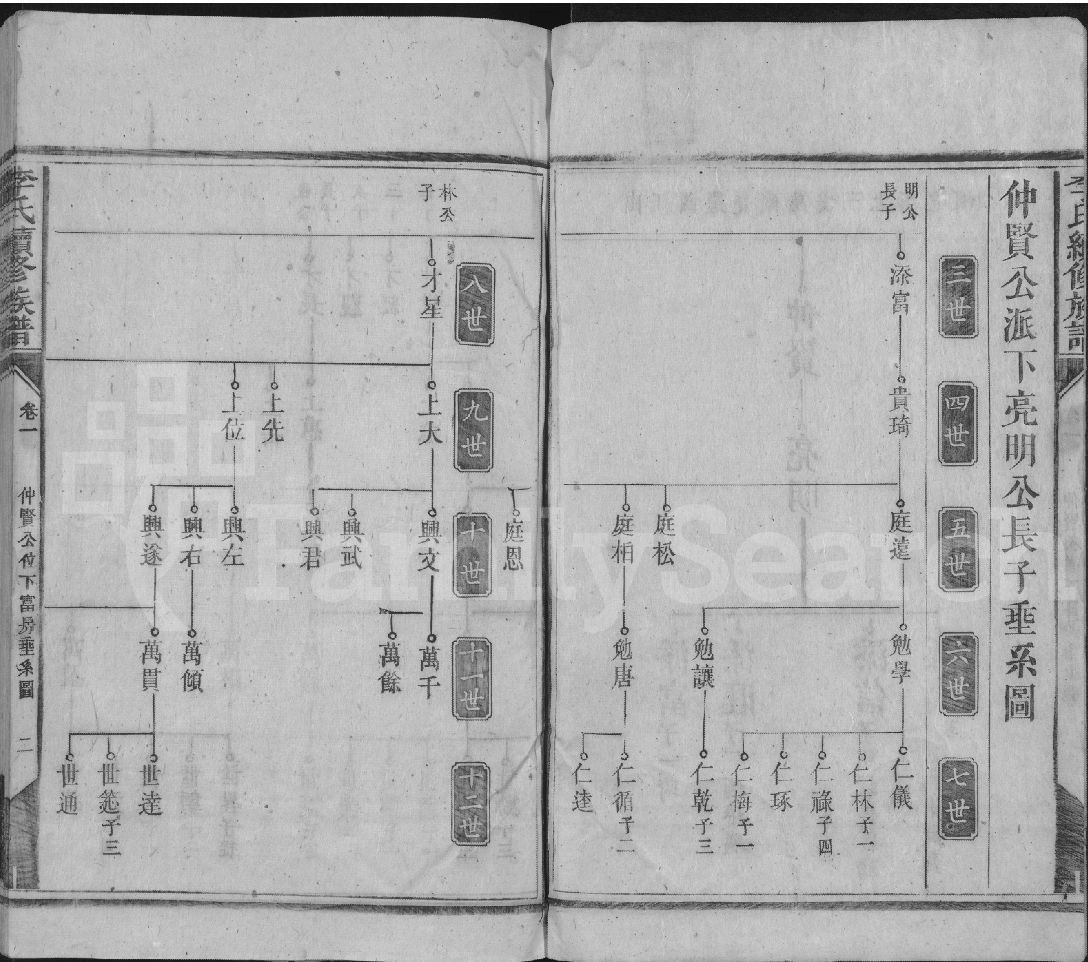 李氏續修族譜
仲賢公派下亮明公長子垂系圖
三世
四世
五世
六世
七世
明公
長子
添富
貴琦
庭遠
庭松
庭相
庭恩
勉學
勉讓
勉唐
仁儀
仁林子一
仁祿子四
仁琢
仁梅子一
仁乾子三
仁循子二
仁達
八世
九世
十世
十一世
十二世
林公
子
才星
上大
上先
上位
興文
興武
興君
興左
興右
興遂
萬千
萬餘
萬傾
萬貫
世達
子三
世通
李氏續修族譜
卷一
仲賢公位下富房垂系圖
二
FamilySearch